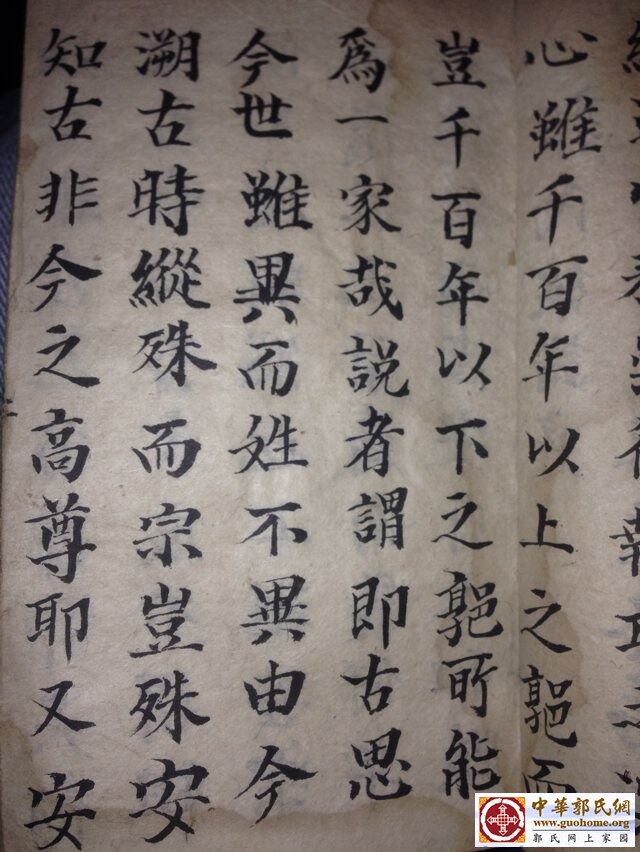 心雖千百年以上之郭而
豈千百年以下之郭所能
爲一家哉説者謂即古思
今世雖異而姓不異由今
溯古時縱殊而宗豈殊安
知古非今之高尊耶又安
中華郭氏網
www.guohome.org
郭氏网上家园